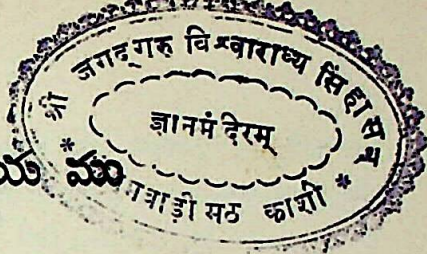 श्री जगद्गुरु विश्वाराध्य सिंहासन
ज्ञानमंदिरम्
मठ काशी